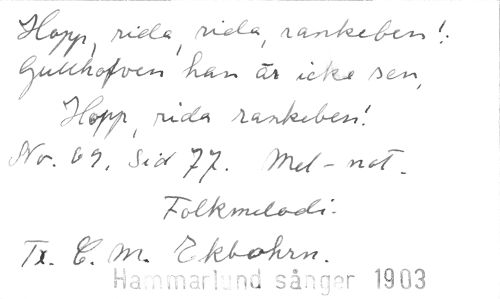 Hopp, rida, rida, rankeben!
Gullhofven han är icke sen,
Hopp, rida rankeben!
No. 69, Sid 77. Mel-not.
Folkmelodi.
Tx. C. M. Ekbohrn.
Hammarlund sånger 1903